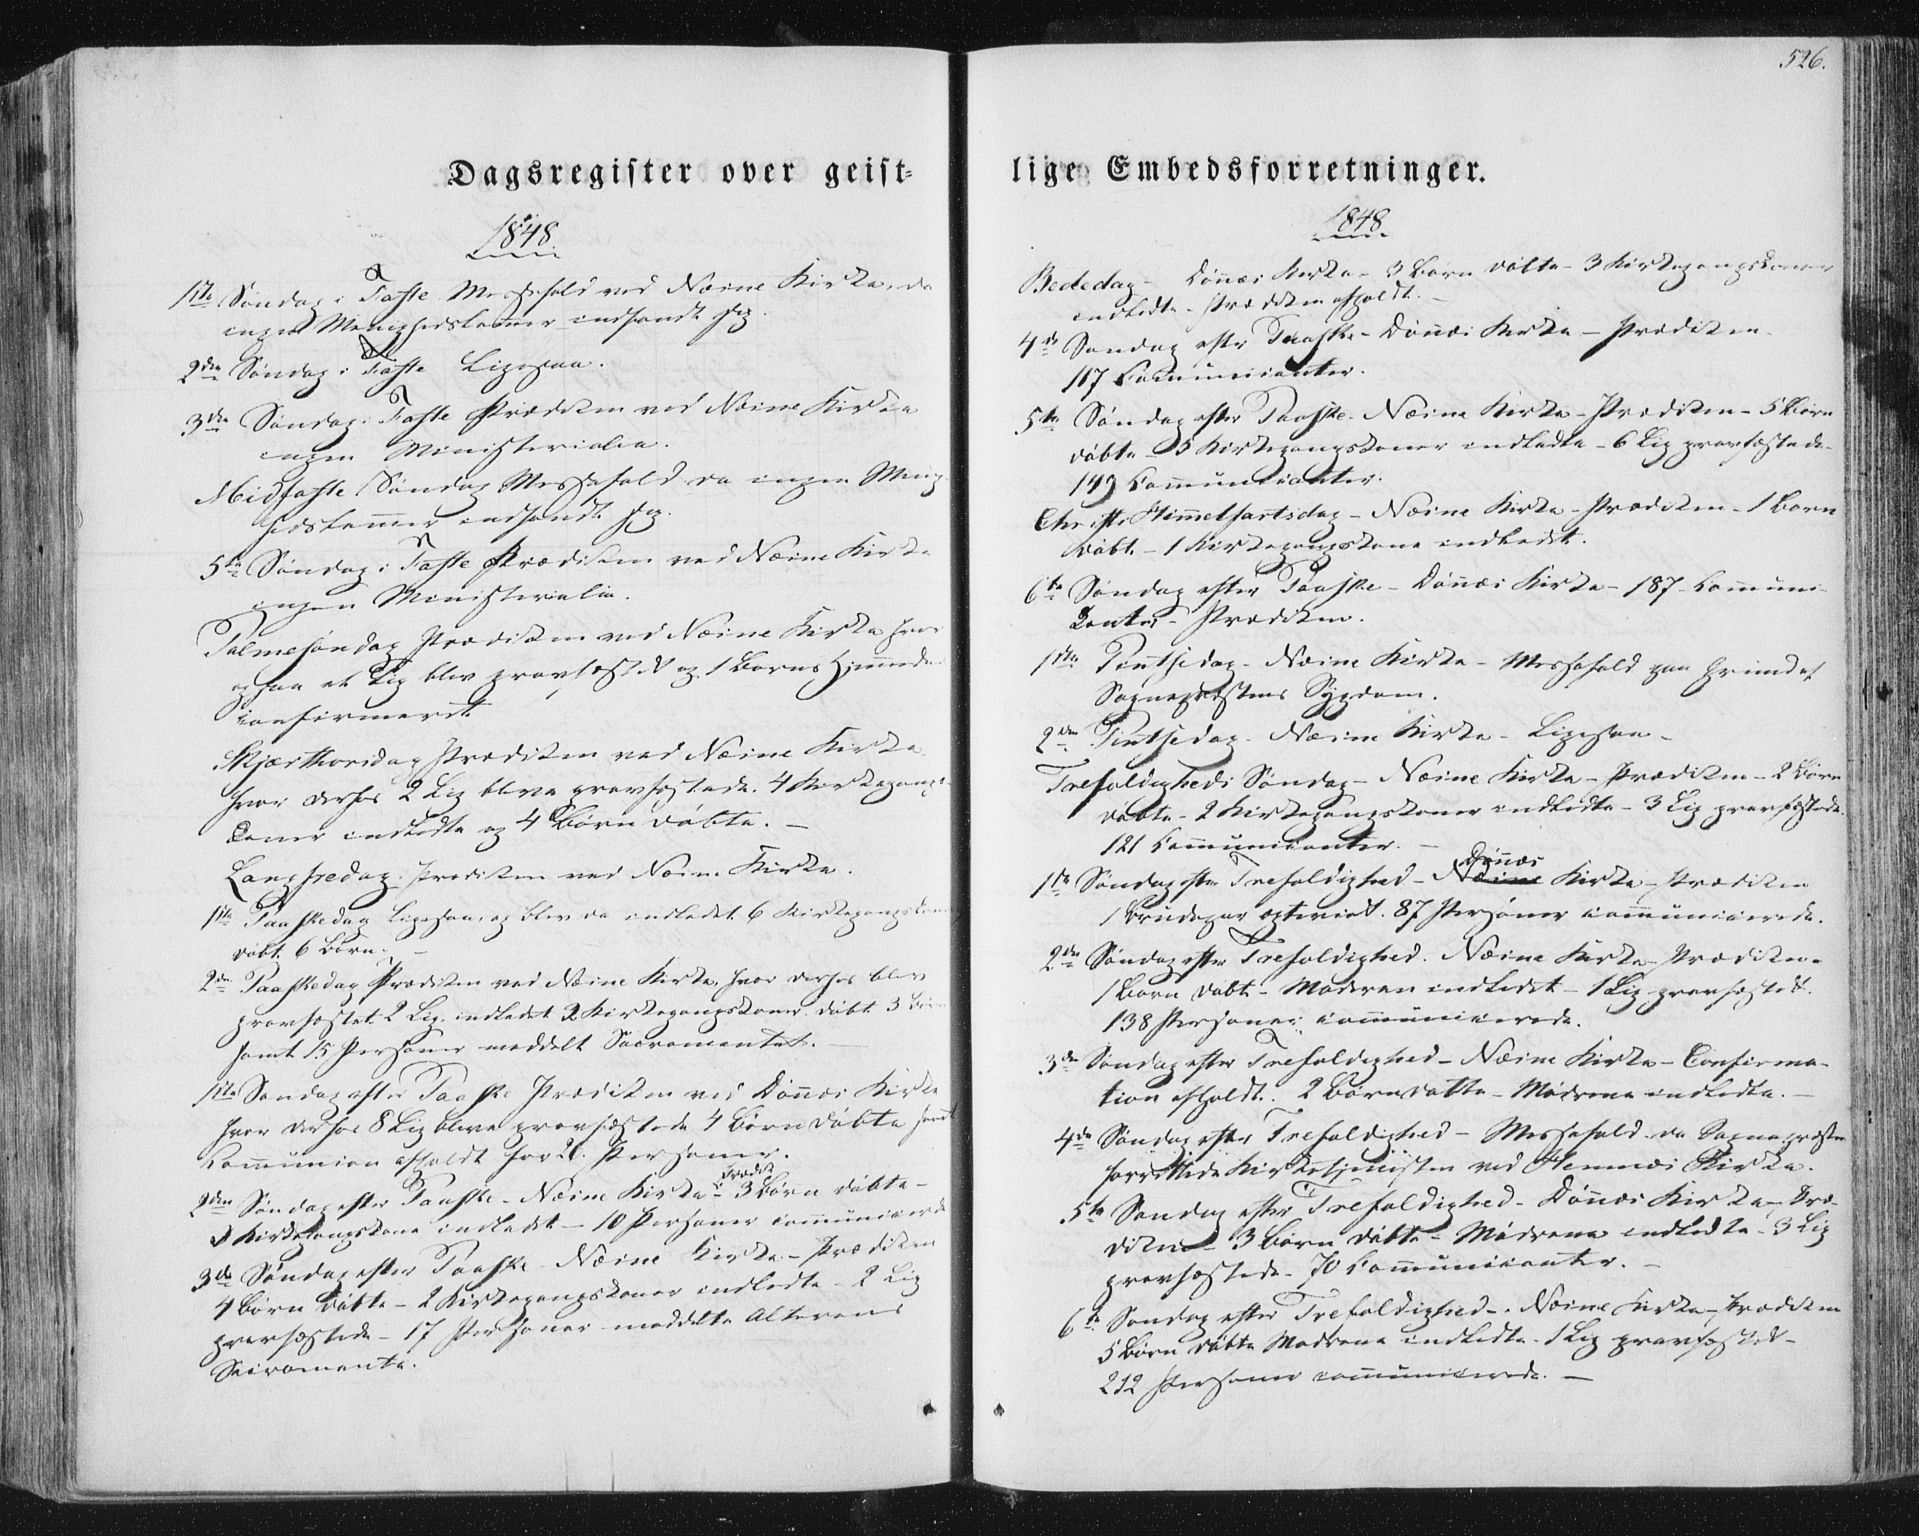 526.
Dagsregister over geist-
lige Embedsforretninger.
1848
1ste Søndag i Faste Messefald ved Næsne Kirke, da
ingen Menighedslemmer indfandt sig.
2den Søndag i Faste Ligesaa.
3die Søndag i Faste Prædiken ved Næsne Kirke
ingen Ministerialia.
Midfaste Søndag Messefald da ingen Menig-
hedslemmer indfandt sig.
5te Søndag i Faste Prædiken ved Næsne Kirke
ingen Ministerialia.
Palmesøndag Prædiken ved Næsne Kirke hvor
ogsaa et Lig blev gravfæstet og 1 Barns Hjemmedaab
confirmeret
Skjærthorsdag Prædiken ved Næsne Kirke
hvor derhos 2 Lig bleve gravfæstede. 4 Kirkegangs-
koner indledte og 4 Børn døbte. -
Langfredag. Prædiken ved Næsne Kirke.
1ste Paaskedag Ligesaa, og blev da indledet 6 Kirkegangskoner
døbt 6 Børn. -
2den Paaskedag Prædiken ved Næsne Kirke, hvor derhos blev
gravfæstet 2 Lig. indledet 2 Kirkegangskoner. døbt 3 Børn
samt 15 Personer meddelt Sacramentet. -
1ste Søndag efter Paaske Prædiken ved Dønnæs Kirke
hvor derhos 8 Lig bleve gravfæstede 4 Børn døbte samt
Communion afholdt for Personer.
2den Søndag efter Paaske - Næsne Kirke - Prædik 3 Børn døbte -
Kirkegangskone indledet - 10 Personer communicerede
3die Søndag efter Paaske - Næsne Kirke - Prædiken
4 Børn døbte - 2 Kirkegangskoner indledte - 2 Lig
gravfæstede - 17 Personer meddelte Alterens
Sacramente.
1848
Bededag - Dønnæs Kirke - 3 Børn døbte - 3 Kirkegangskoner
indledte - Prædiken afholdt. -
4de Søndag efter Paaske - Dønnæs Kirke - Prædiken.
117 Communicanter.
5te Søndag efter Paaske - Næsne Kirke - Prædiken - 5 Børn
døbte - 5 Kirkegangskoner indledte - 6 Lig gravfæstede -
149 Communicanter.
Christi Himmelfartsdag - Næsne Kirke - Prædiken - 1 Barn
døbt - 1 Kirkegangskone indledet.
6te Søndag efter Paaske - Dønnæs Kirke - 187 Communi-
kanter - Prædiken.
1ste Pintsedag - Næsne Kirke - Messefald paa Grund af
Sognepræstens Sygdom.
2den Pintsedag - Næsne Kirke - Ligesaa -
Trefoldigheds Søndag - Næsne Kirke - Prædiken - 2 Børn
døbte - 2 Kirkegangskoner indledte - 3 Lig gravfæstede
121 Communicanter. -
1ste Søndag efter Trefoldighed - Næsne Dønnæs Kirke - Prædiken
1 Brudepar copuleret. 87 Personer communicerede.
2den Søndag efter Trefoldighed. Næsne Kirke - Prædiken -
1 Barn døbt - Moderen indledet - 1 Lig gravfæstet.
138 Personer communicerede.
3die Søndag efter Trefoldighed - Næsne Kirke - Confirma-
tion afholdt. 2 Børn døbte - Mødrene indledte. -
4de Søndag efter Trefoldighed - Messefald da Sognepræsten
forrettede Kirketjenesten ved Hemnæs Kirke.
5te Søndag efter Trefoldighed - Dønnæs Kirke - Præ-
diken - 3 Børn døbte - Mødrene indledte - 3 Lig
gravfæstede - 70 Communicanter. -
6te Søndag efter Trefoldighed - Næsne Kirke - Prædiken
5 Børn døbte Mødrene indledte - 1 Lig gravfæstet -
212 Personer communicerede. -